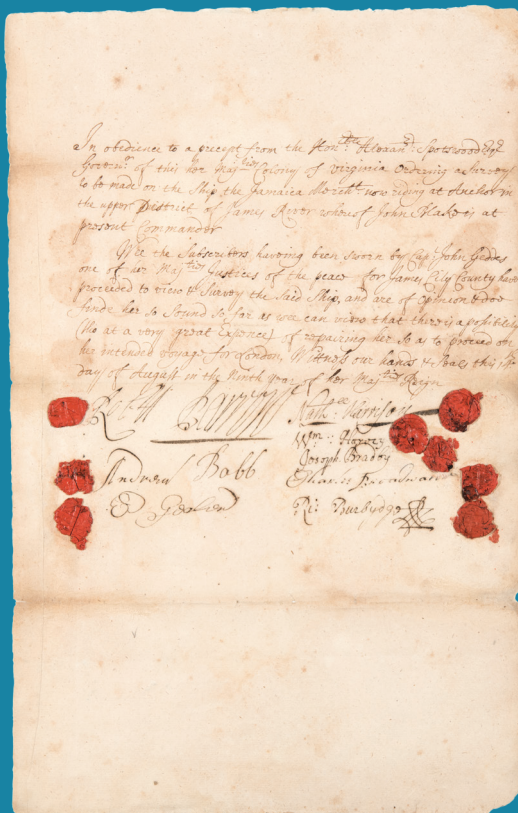 In obedience to a precept from the Honble Alexandr Spotswood Esqr
Governr of this her Majties Colony of Virginia Ordering a Survey
to be made on the Ship the Jamaica Mercht now riding at Anchor in
the upper District of James River whereof John Blake is at
present Commander
Wee the Subscribers having been sworn by Cap John Geddes
one of her Majties Justices of the peace for James City County have
proceeded to view & Survey the Said Ship, and are of Opinion & doe
finde her so Sound so far as wee can view that there is a possibility
(tho at a very great Expence) of repairing her so as to proceed on
her intended voyage for London. Wittness our hands & Seals this
day of August in the Ninth year of her Majties Reign
Nath Harrison
Wm: Harvey
Joseph Bradby
Andrew Babb
Charles
Ri: Burbydge